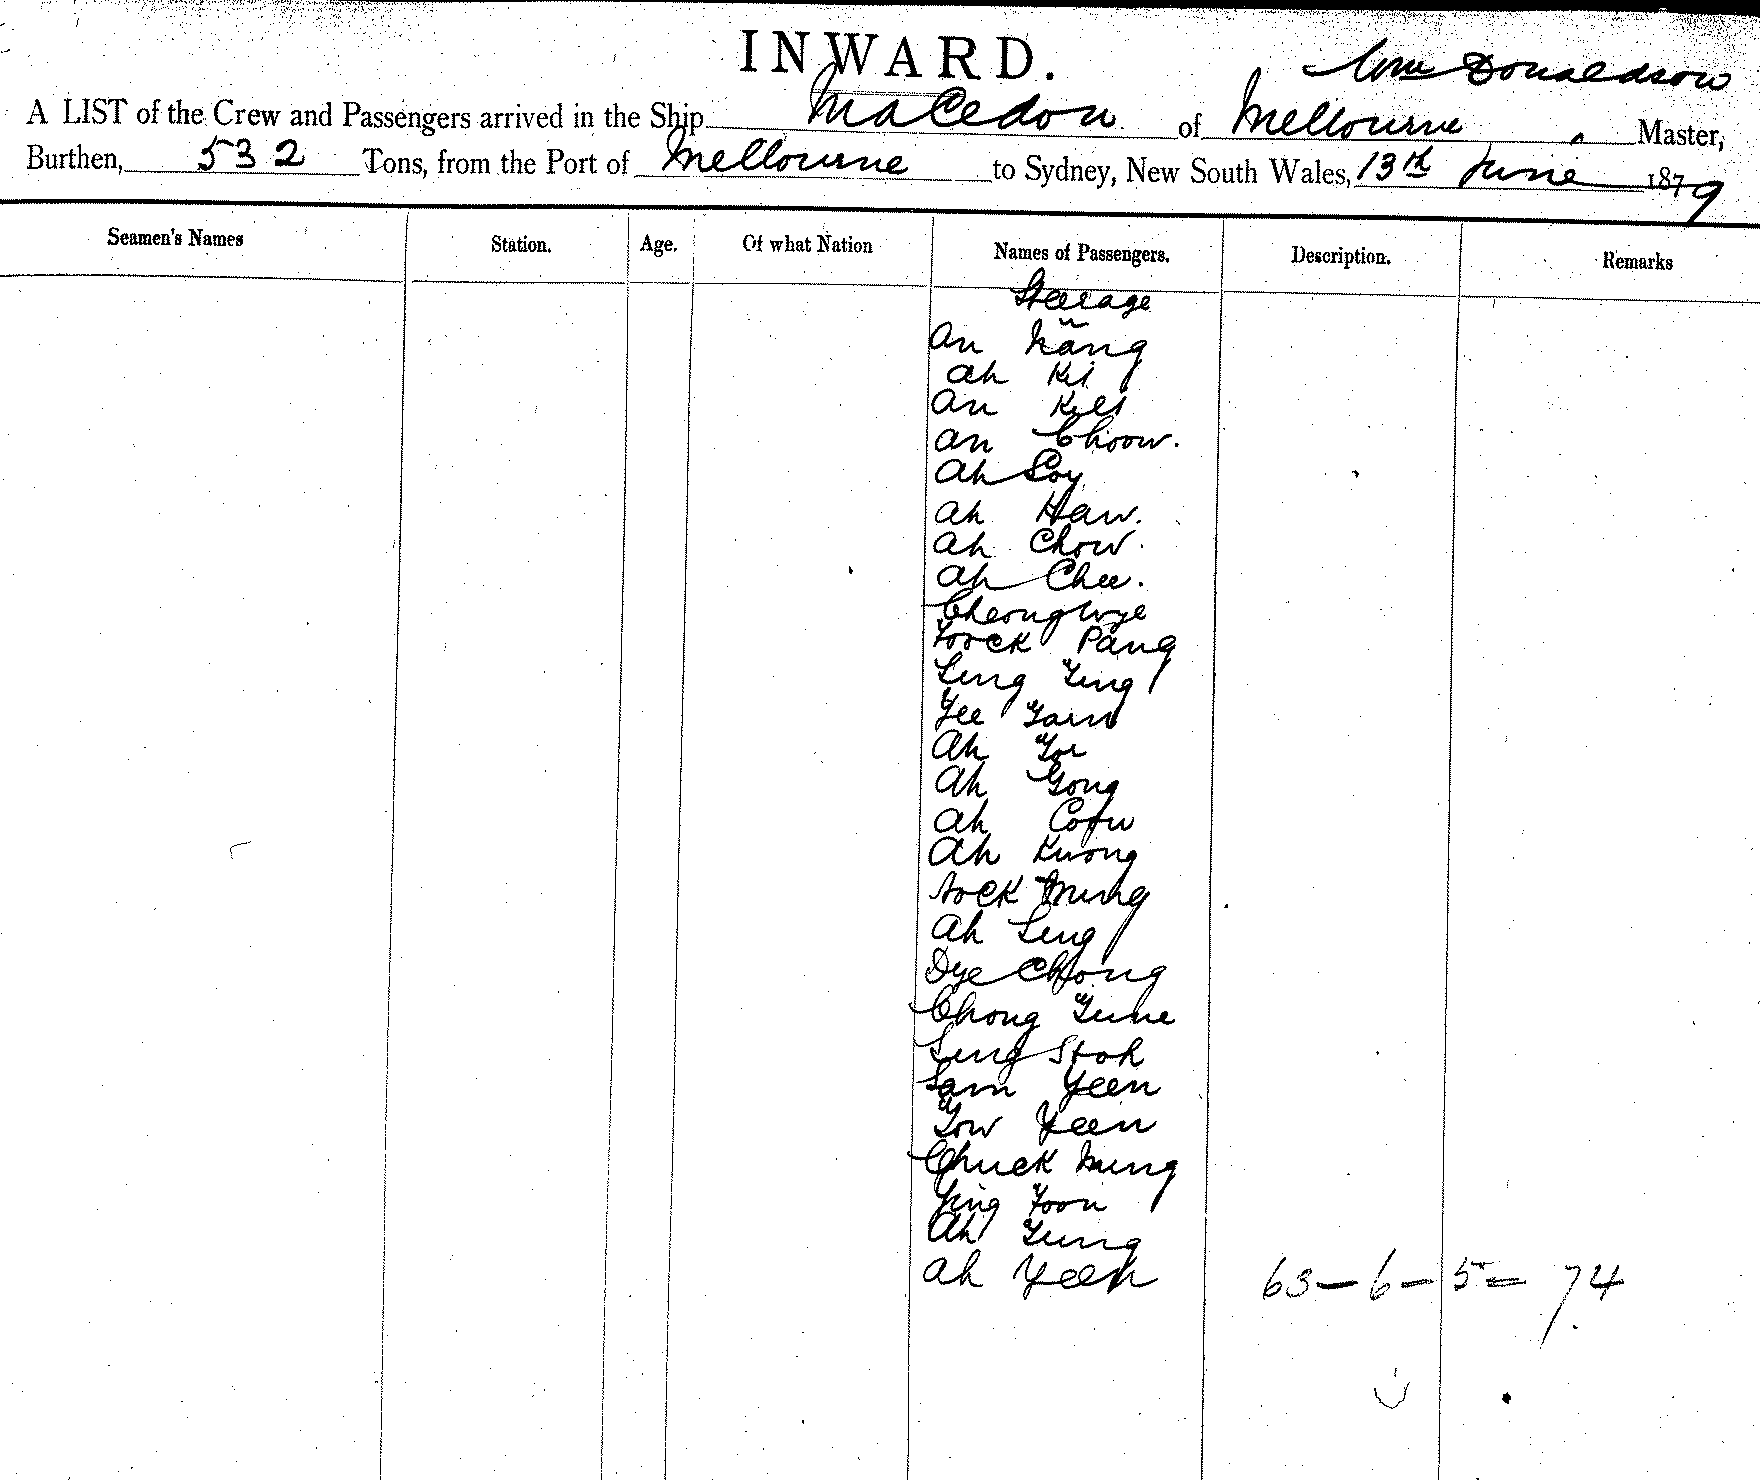 INWARD.
Wm Donaldson
A LIST of the Crew and Passengers arrived in the Ship Macedon of Melbourne , Master,
Burthen, 532 Tons, from the Port of Melbourne to Sydney, New South Wales, 13th June 1879
Seamen's Names Station. Age. Of what Nation Names of Passengers. Description. Remarks
Steerage
An Năng
Ah Kit
An
An Choow.
Ah Loy
Ah Haw.
Ah Chow.
Ah Chee.
Cheong Wye
Foock Pang
Ling Ying
Yee Yann
Ah
Ah Gong
Ah
Ah Kuong
Ming
Ah Ling
Dye Chong
Chong Yune
Ling
Sam Yeen
Yow Yeen
Chuck Ming
Ying Foon
Ah Yung
Ah Yeen 63 - 6 - 5 = 74